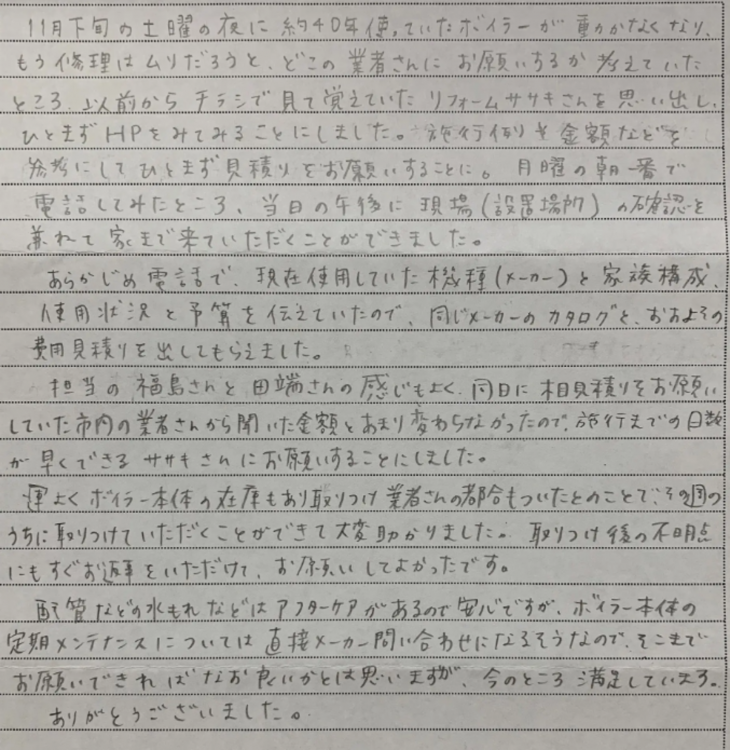 11月下旬の土曜の夜に約40年使っていたボイラーが動かなくなり、
もう修理はムリだろうと、どこの業者さんにお願いするか考えていた
ところ、以前からチラシで見て覚えていたリフォームササキさんを思い出し、
ひとまずHPをみてみることにしました。施行例や金額などを
参考にしてひとまず見積りをお願いすることに。月曜の朝一番で
電話してみたところ、当日の午後に現場(設置場所)の確認を
兼ねて家まで来ていただくことができました。
あらかじめ電話で、現在使用していた機種(メーカー)と家族構成、
使用状況と予算を伝えていたので、同じメーカーのカタログと、おおよその
費用見積りを出してもらえました。
担当の福島さんと田端さんの感じもよく、同日に相見積りをお願い
していた市内の業者さんから聞いた金額とあまり変わらなかったので、施行までの日数
が早くできるササキさんにお願いすることにしました。
運よくボイラー本体の在庫もあり取りつけ業者さんの都合もついたとのことで、その週の
うちに取りつけていただくことができて大変助かりました。取りつけ後の不明点
にもすぐお返事をいただけて、お願いしてよかったです。
配管などの水もれなどはアフターケアがあるので安心ですが、ボイラー本体の
定期メンテナンスについては直接メーカー問い合わせになるそうなので、そこまで
お願いできればなお良いかとは思いますが、今のところ満足しています。
ありがとうございました。